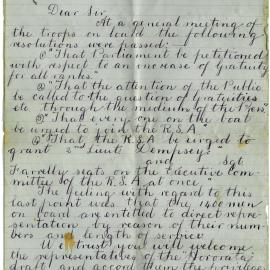 Dear Sir,
At a general meeting of
the troops on board the following
resolutions were passed:
① "That Parliament be petitioned
with respect to an increase of gratuity
for all ranks."
② "That the attention of the Public
be called to the question of Gratuities
etc through the medium of the Papers.
③ "That every one on the boat
be urged to join the R.S.A."
④ "That the R.S.A be urged to
grant 2nd Lieut Dempsey
and Sgt
Farrelly seats on the Executive Com-
mittee of the R.S.A. at once."
The feeling with regard to this
last point was that the 1400 men
on board are entitled to direct repre-
sentation, by reason of their num-
bers and length of service.
We trust you will welcome
the representatives of the "Hororata"
draft and accord them the